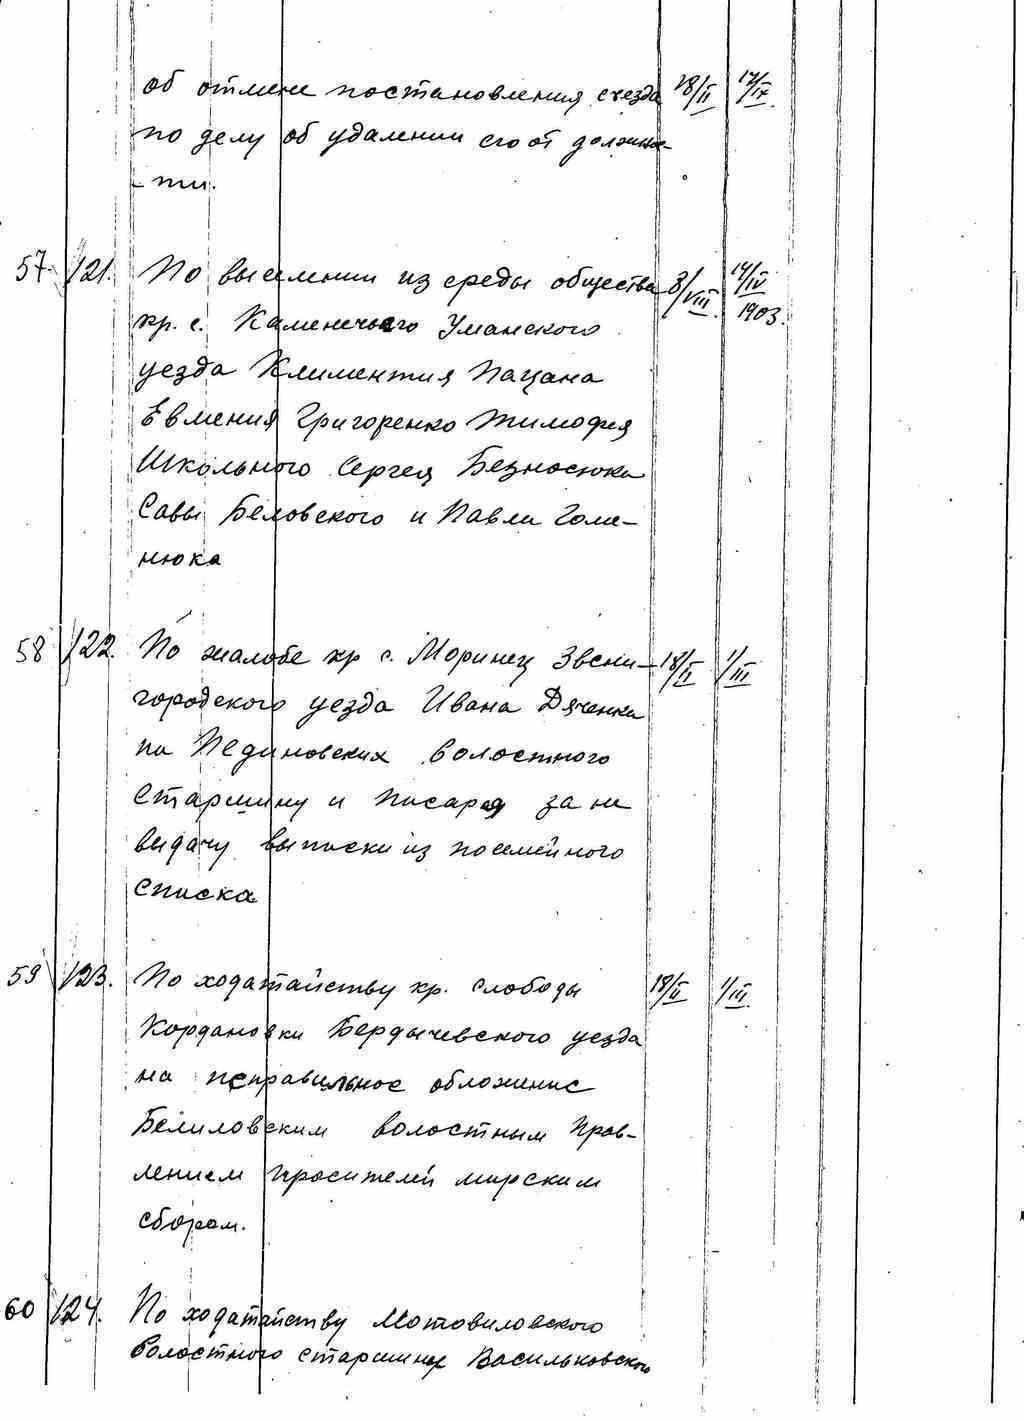 об отмене постановления съезда 18/II 17/IX
по делу об удалении его от должнос-
ти.
57. 121. По выселении из среды общества 8/VIII. 14/IV 1903.
кр. с. Каменечьего Уманского
уезда Климентия Пацана
Евмения Григоренко Тимофея
Школьного Сергея Безносюка
Савы Беловского и Павла Голе-
нюка
58 122. По жалобе кр с. Моринец Звени- 18/II 1/III
городского уезда Ивана Дяченка
на Пединовских волостного
старшину и писаря за не
выдачу выписки из посемейного
списка
59 123. По ходатайству кр. слободы 18/II 1/III
Кордановки Бердычевского уезда
на неправильное обложение
Белиловским волостным прав-
лением просителей мирским
сбором.
60 124. По ходатайству Мотовиловского
волостного старшины Васильковского